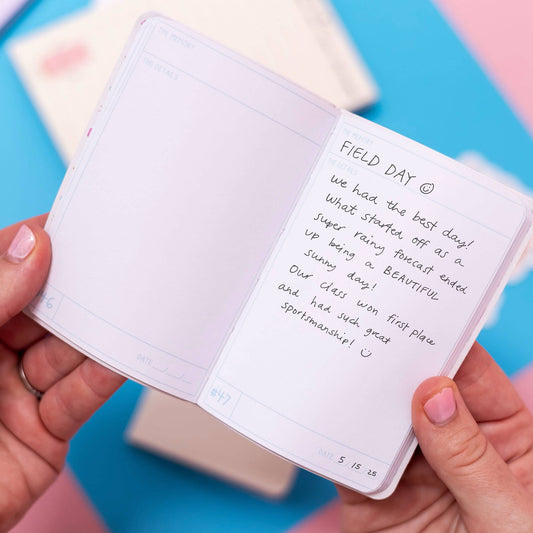 THE MEMORY
THE DETAILS
#46
DATE
THE MEMORY
FIELD DAY ☺
THE DETAILS
we had the best day!
What started off as a
super rainy forecast ended
up being a BEAUTIFUL
sunny day!
Our class won first place
and had such great
sportsmanship! ☺
#47
DATE 5.15.25